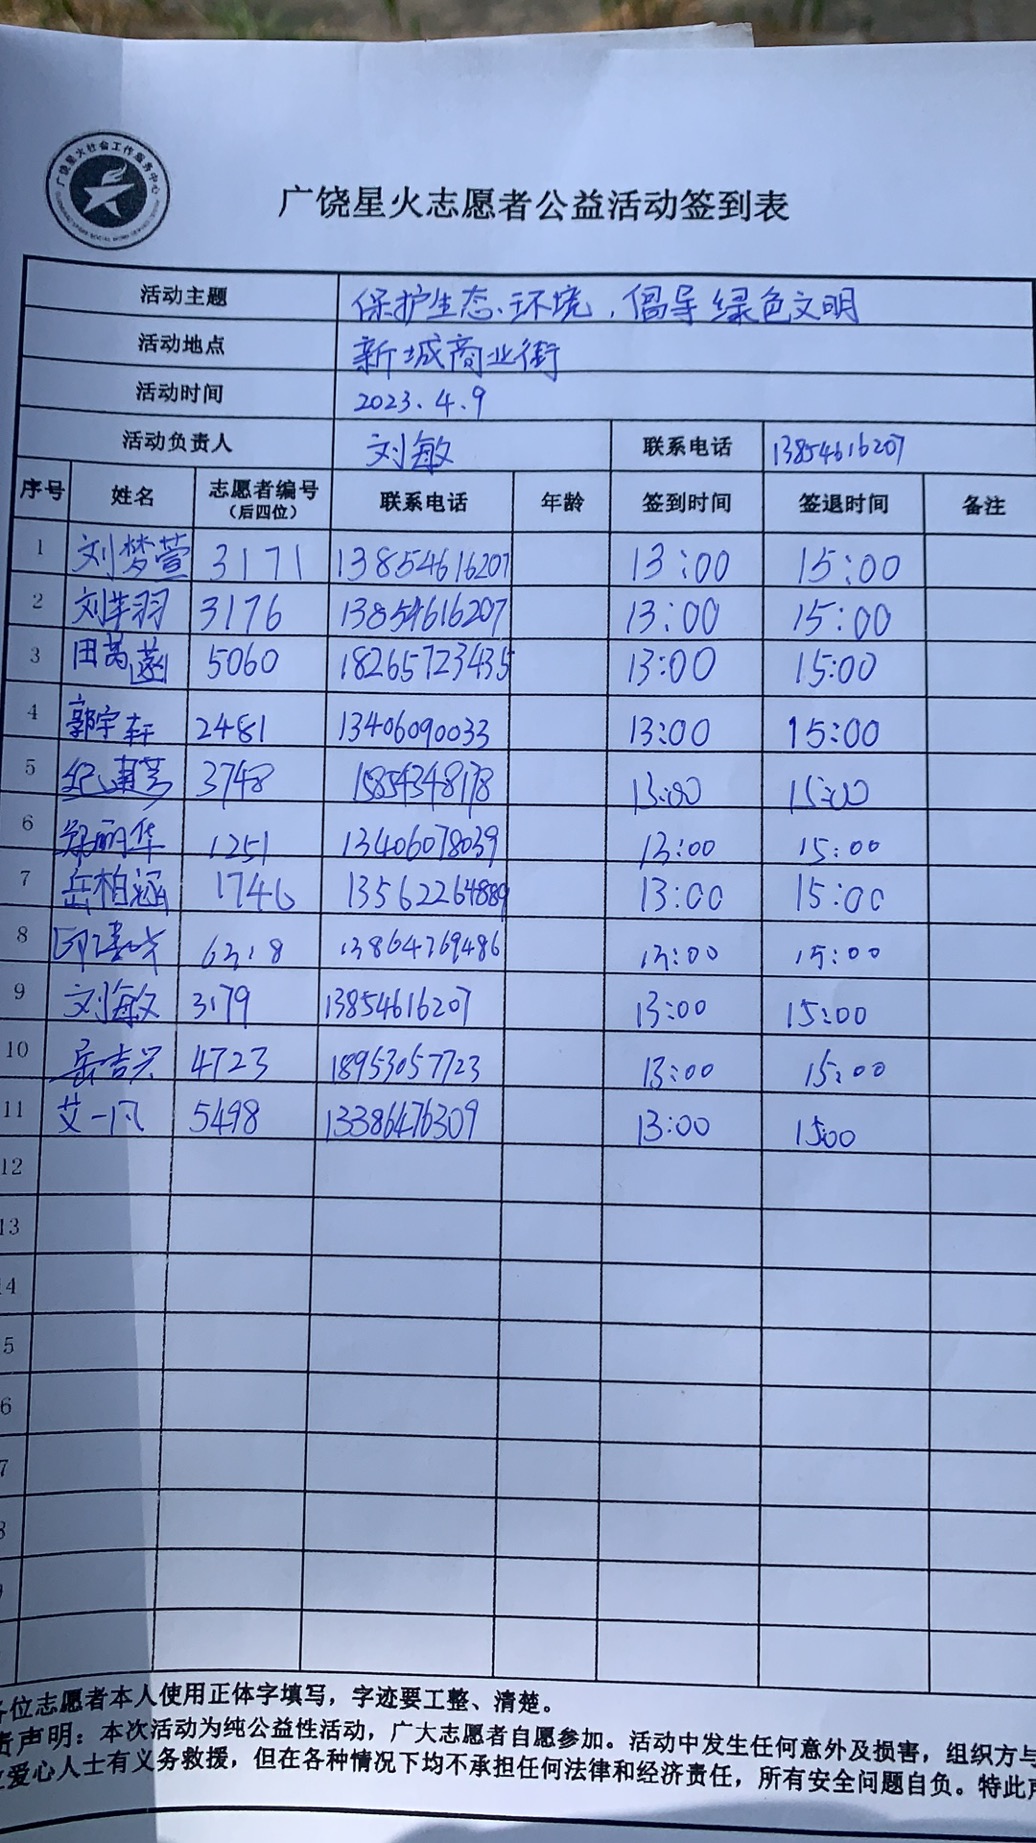 广饶星火社会工作服务中心
广饶星火志愿者公益活动签到表
活动主题 保护生态、环境,倡导绿色文明
活动地点 新城商业街
活动时间 2023.4.9
活动负责人 刘敏 联系电话 13854616207
序号 姓名 志愿者编号（后四位） 联系电话 年龄 签到时间 签退时间 备注
1 刘梦萱 3171 13854616207 13:00 15:00
2 刘芊羽 3176 13854616207 13:00 15:00
3 田 5060 18265723435 13:00 15:00
4 郭宇轩 2481 13406090033 13:00 15:00
5 3748 15854348178 13:00 15:00
6 郑丽华 1251 13406078039 13:00 15:00
7 岳柏涵 1746 13562264889 13:00 15:00
8 6318 13864769486 13:00 15:00
9 刘敏 3179 13854616207 13:00 15:00
10 岳吉兴 4723 18953057723 13:00 15:00
11 艾一凡 5498 13386476309 13:00 15:00
12
13
14
5
6
7
8
各位志愿者本人使用正体字填写，字迹要工整、清楚。
责声明：本次活动为纯公益性活动，广大志愿者自愿参加。活动中发生任何意外及损害，组织方与
爱心人士有义务救援，但在各种情况下均不承担任何法律和经济责任，所有安全问题自负。特此声